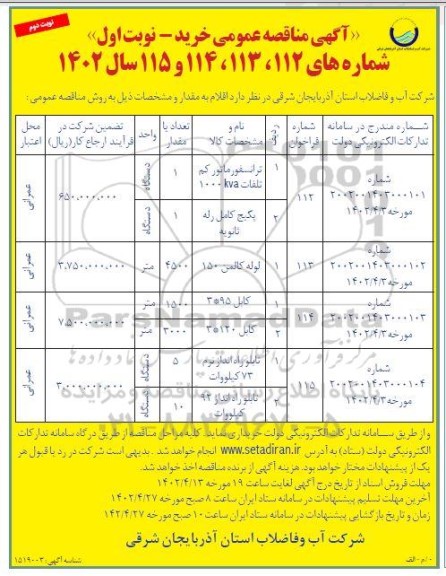 نوبت دوم
«آگهی مناقصه عمومی خرید - نوبت اول»
شماره های ۱۱۲، ۱۱۳، ۱۱۴ و ۱۱۵ سال ۱۴۰۲
شرکت آب و فاضلاب استان آذربایجان شرقی در نظر دارد اقلام به مقدار و مشخصات ذیل به روش مناقصه عمومی:
شماره مندرج در سامانه تدارکات الکترونیکی دولت
شماره فراخوان
ردیف
نام و مشخصات کالا
تعداد یا مقدار
واحد
تضمین شرکت در فرآیند ارجاع کار(ریال)
محل اعتبار
شماره ۲۰۰۲۰۰۱۴۰۳۰۰۰۱۰۱ مورخه ۱۴۰۲/۴/۳
۱۱۲
۱
ترانسفورماتور کم تلفات ۱۰۰۰kva
۱
دستگاه
۶۵۰,۰۰۰,۰۰۰
عمرانی
۲
پکیج کامل رله ثانویه
۱
دستگاه
شماره ۲۰۰۲۰۰۱۴۰۳۰۰۰۱۰۲ مورخه ۱۴۰۲/۴/۳
۱۱۳
لوله کالفن ۱۵۰
۴۵۰۰
متر
۳,۷۵۰,۰۰۰,۰۰۰
عمرانی
شماره ۲۰۰۲۰۰۱۴۰۳۰۰۰۱۰۳ مورخه ۱۴۰۲/۴/۳
۱۱۴
۱
کابل ۹۵*۳
۱۵۰۰
متر
۷,۵۰۰,۰۰۰,۰۰۰
عمرانی
۲
کابل ۱۲۰*۳
۳۰۰۰
متر
شماره ۲۰۰۲۰۰۱۴۰۳۰۰۰۱۰۴ مورخه ۱۴۰۲/۴/۳
۱۱۵
۱
تابلو راه انداز نرم ۷۳ کیلووات
۵
دستگاه
۳,۰۰۰,۰۰۰,۰۰۰
عمرانی
۲
تابلو راه انداز ۹۲ کیلووات
۱۰
دستگاه
ParsNamadData
و از طریق سامانه تدارکات الکترونیکی دولت خریداری نماید. کلیه مراحل مناقصه از طریق درگاه سامانه تدارکات
الکترونیکی دولت (ستاد) به آدرس www.setadiran.ir انجام خواهد شد. بدیهی است شرکت در رد یا قبول هر
یک از پیشنهادات مختار خواهد بود. هزینه آگهی از برنده مناقصه اخذ خواهد شد.
مهلت فروش اسناد از تاریخ درج آگهی لغایت ساعت ۱۹ مورخه ۱۴۰۲/۴/۱۳
آخرین مهلت تسلیم پیشنهادات در سامانه ستاد ایران ساعت ۸ صبح مورخه ۱۴۰۲/۴/۲۷
زمان و تاریخ بازگشایی پیشنهادات در سامانه ستاد ایران ساعت ۱۰ صبح مورخه ۱۴۲/۴/۲۷
شرکت آب وفاضلاب استان آذربایجان شرقی
شناسه آگهی: ۱۵۱۹۰۰۳
م/الف